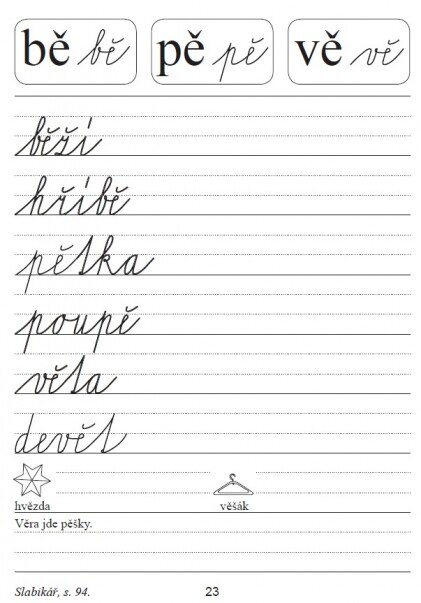 bě bě pě pě vě vě
běží
hříbě
pětka
poupě
věta
devět
hvězda věšák
Věra jde pěšky.
Slabikář, s. 94. 23